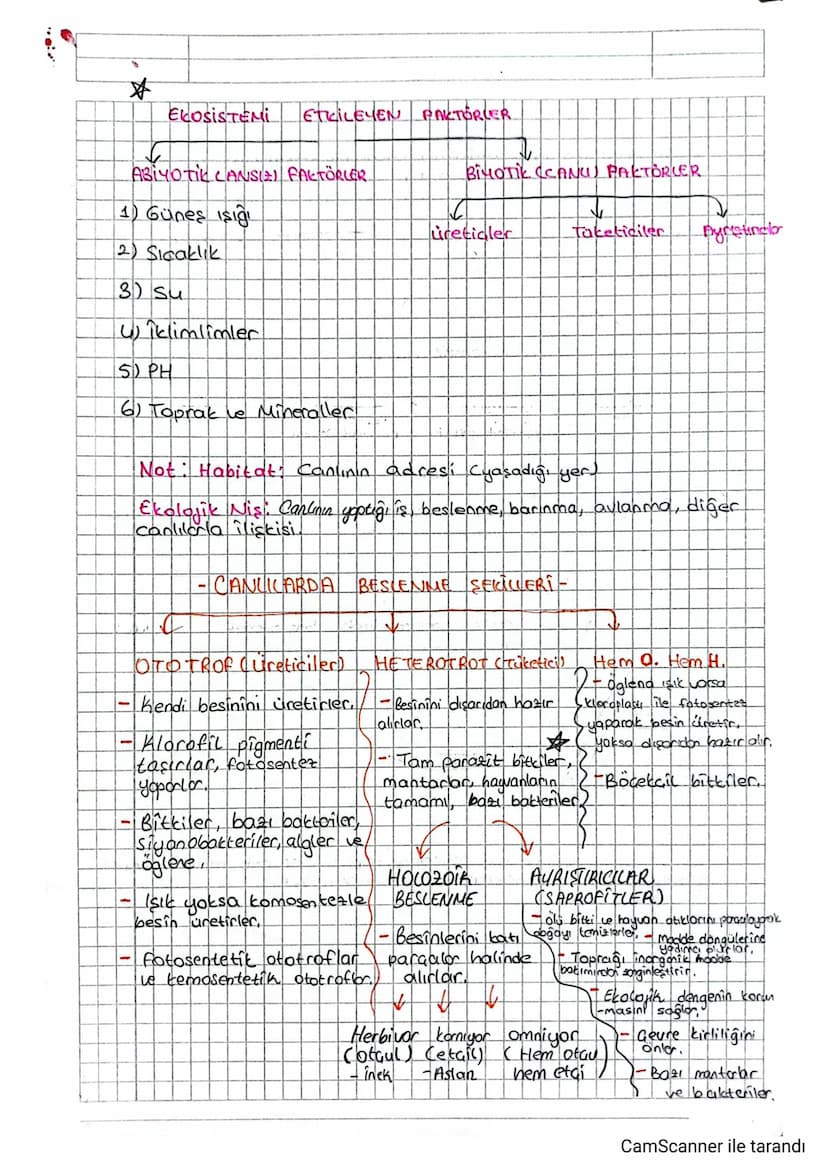 EKOSİSTEMİ ETKİLEYEN FAKTÖRLER
ABİYOTİK (CANSIZ) FAKTÖRLER
BİYOTİK (CANLI) FAKTÖRLER
1) Güneş ışığı
2) Sıcaklık
3) Su
4) İklimlimler
5) PH
6) Toprak ve Mineraller
Üreticiler
Tüketiciler
Ayrıştırıcılar
Not: Habitat: Canlının adresi (yaşadığı yer)
Ekolojik Niş: Canlının yaptığı iş, beslenme, barınma, avlanma, diğer
canlılarla ilişkisi.
- CANLILARDA BESLENME ŞEKİLLERİ -
OTOTROF (Üreticiler)
- Kendi besinini üretirler.
- Klorofil pigmenti
taşırlar, fotosentez
yaparlar.
- Bitkiler, bazı bakteriler,
siyanobakteriler, algler ve
öglena.
- Işık yoksa kemosentezle
besin üretirler.
- fotosentetik ototroflar
ve kemosentetik ototroflar.
HETEROTROT (Tüketici)
- Besinini dışarıdan hazır
alırlar.
- Tam parazit bitkiler,
mantarlar, hayvanların
tamamı, bazı bakteriler
Hem O. Hem H.
- öglena ışık varsa
kloroplastı ile fotosentez
yaparak besin üretir,
yoksa dışarıdan hazır alır.
- Böcekcil bitkiler.
HOLOZOİK
BESLENME
- Besinlerini katı
parçalar halinde
alırlar.
Herbivor
(otçul)
- inek
karnivor
(etçil)
- Aslan
omnivor
(Hem otçu
hem etçi)
AYRIŞTIRICILAR
(SAPROFİTLER)
- ölü bitki ve hayvan atıklarını parçalayarak
doğayı temizlerler.
- madde döngülerine
yardımcı olurlar.
- Toprağı inorganik madde
bakımından zenginleştirir.
- Ekolojik dengenin korun
-masını sağlar.
- Çevre kirliliğini
önler.
- Bazı mantarlar
ve bakteriler.
CamScanner ile tarandı